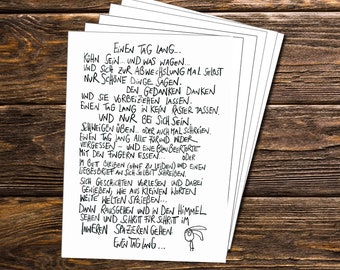 EINEN TAG LANG...
KÜHN SEIN... UND WAS WAGEN...
UND SICH ZUR ABWECHSLUNG MAL SELBST
NUR SCHÖNE DINGE SAGEN.
DEN GEDANKEN DANKEN
UND SIE VORBEIZIEHEN LASSEN.
EINEN TAG LANG IN KEIN RASTER PASSEN.
UND NUR BEI SICH SEIN.
SCHWEIGEN ÜBEN... ODER AUCH MAL SCHREIEN.
EINEN TAG LANG ALLE FÜR UND WIDER
VERGESSEN – UND EINE BLAUBEERTORTE
MIT DEN FINGERN ESSEN... ODER
IM BETT BLEIBEN (OHNE ZU LEIDEN) UND EINEN
LIEBESBRIEF AN SICH SELBST SCHREIBEN.
SICH GESCHICHTEN VORLESEN UND DABEI
GENIEßEN, WIE AUS KLEINEN WORTEN
WEITE WELTEN SPRIEßEN...
DANN RAUSGEHEN UND IN DEN HIMMEL
SEHEN UND SCHRITT FÜR SCHRITT IM
INNEREN SPAZIEREN GEHEN.
EINEN TAG LANG...